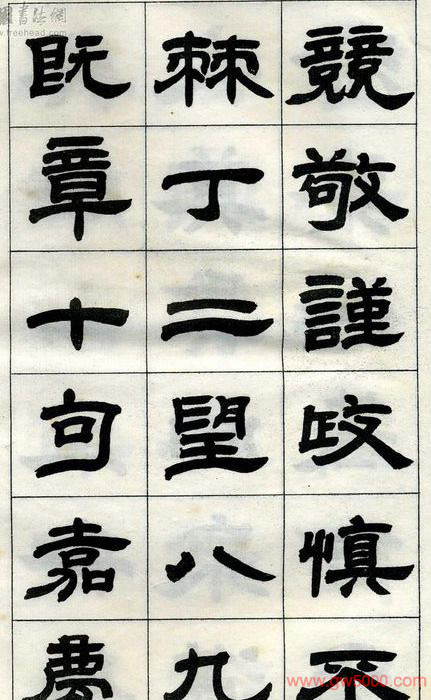 競敬謹政慎
棘丁二望八九
既章十句嘉
書法網
www.freehead.com
www.gw5000.com